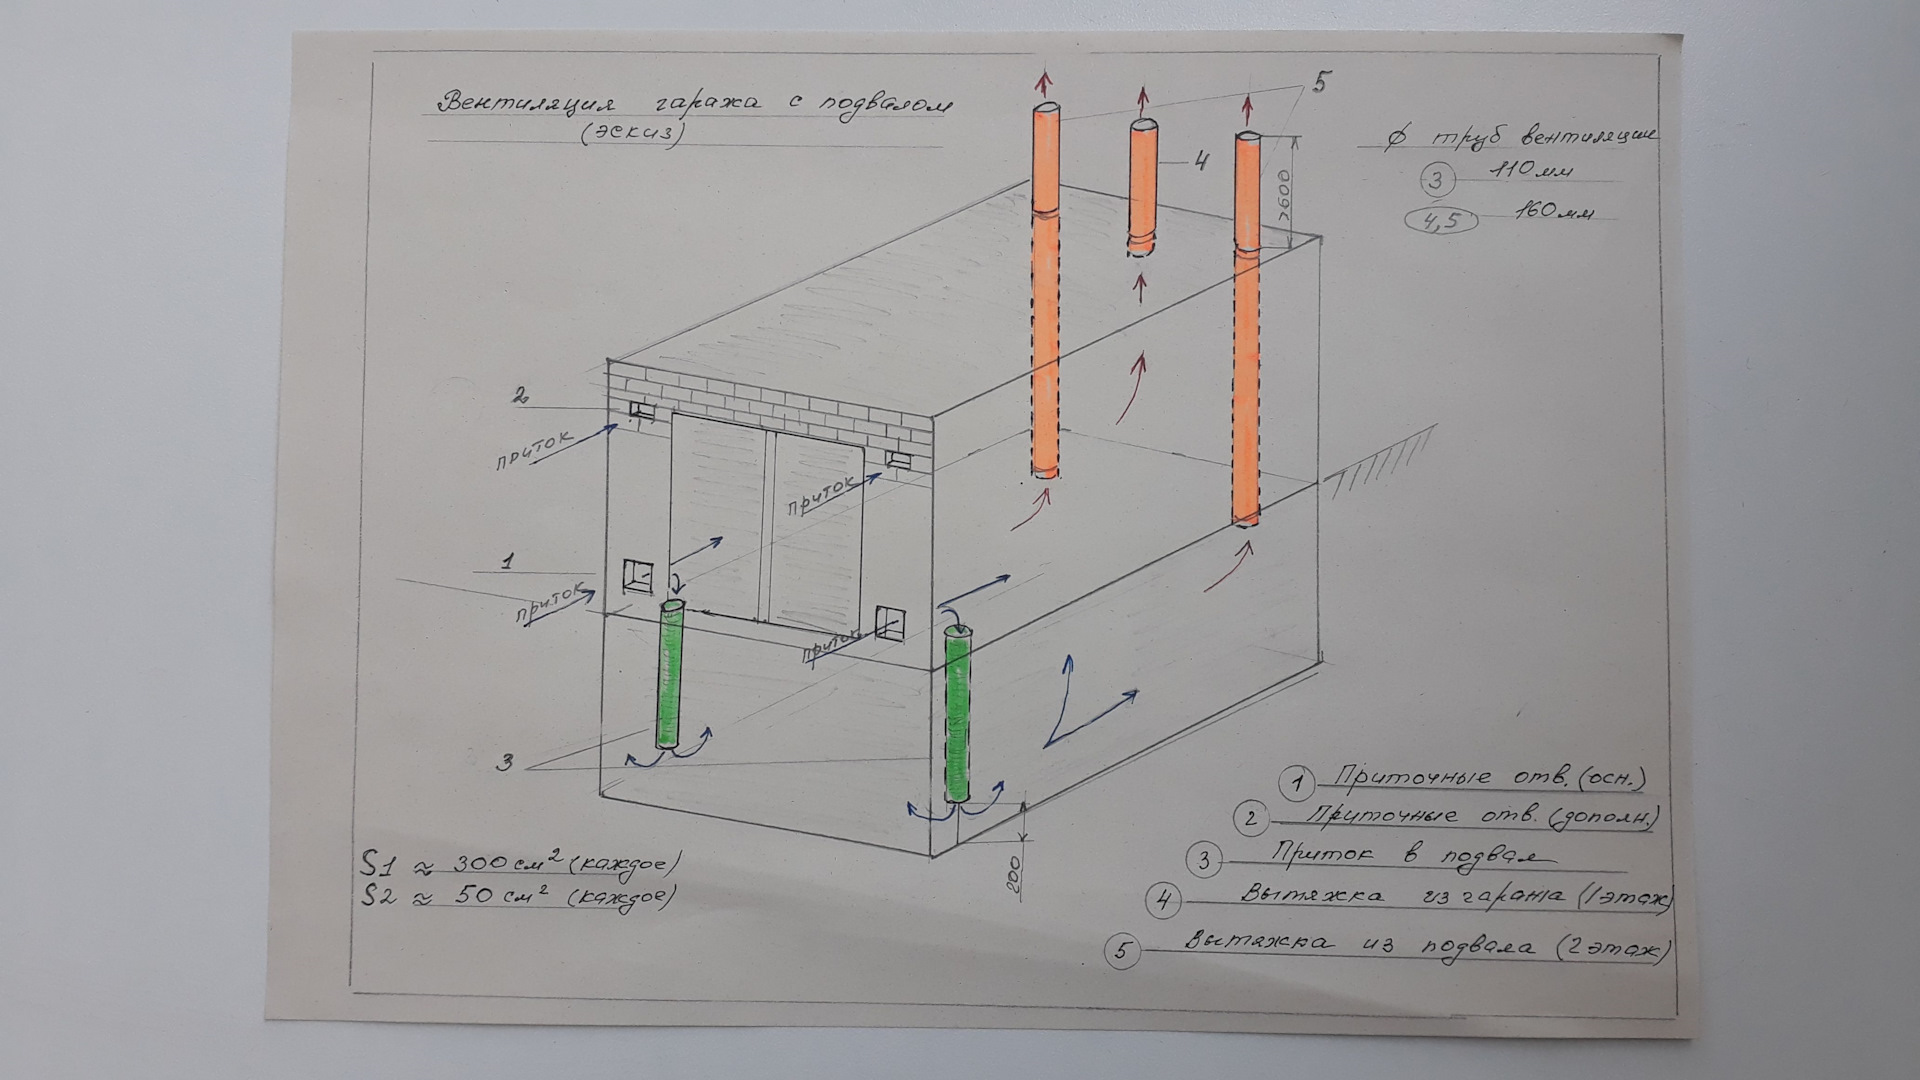 Вентиляция гаража с подвалом
(эскиз)
5
4
>600
ϕ труб вентиляции
3 110мм
4,5 160мм
2
приток
приток
1
приток
приток
3
200
S1 ≈ 300 см² (каждое)
S2 ≈ 50 см² (каждое)
1 Приточные отв. (осн.)
2 Приточные отв. (дополн.)
3 Приток в подвал
4 Вытяжка из гаража (1 этаж)
5 Вытяжка из подвала (2 этаж)